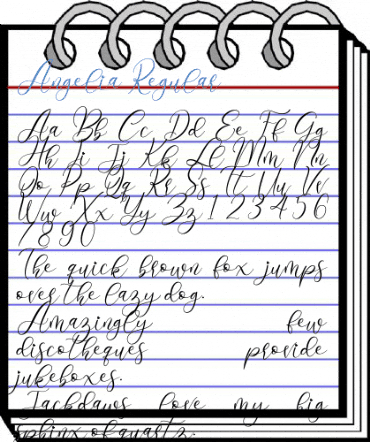 Angelia Regular
Aa Bb Cc Dd Ee Ff Gg
Hh Ii Jj Kk Ll Mm Nn
Oo Pp Qq Rr Ss Tt Uu Vv
Ww Xx Yy Zz 1 2 3 4 5 6
7 8 9 0
The quick brown fox jumps
over the lazy dog.
Amazingly few
discotheques provide
jukeboxes.
Jackdaws love my big
sphinx of quartz.